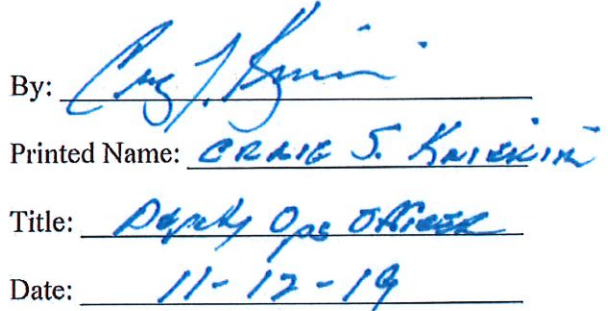 By:
Printed Name: CRAIG J. 
Title: Deputy Ops Officer
Date: 11-12-19